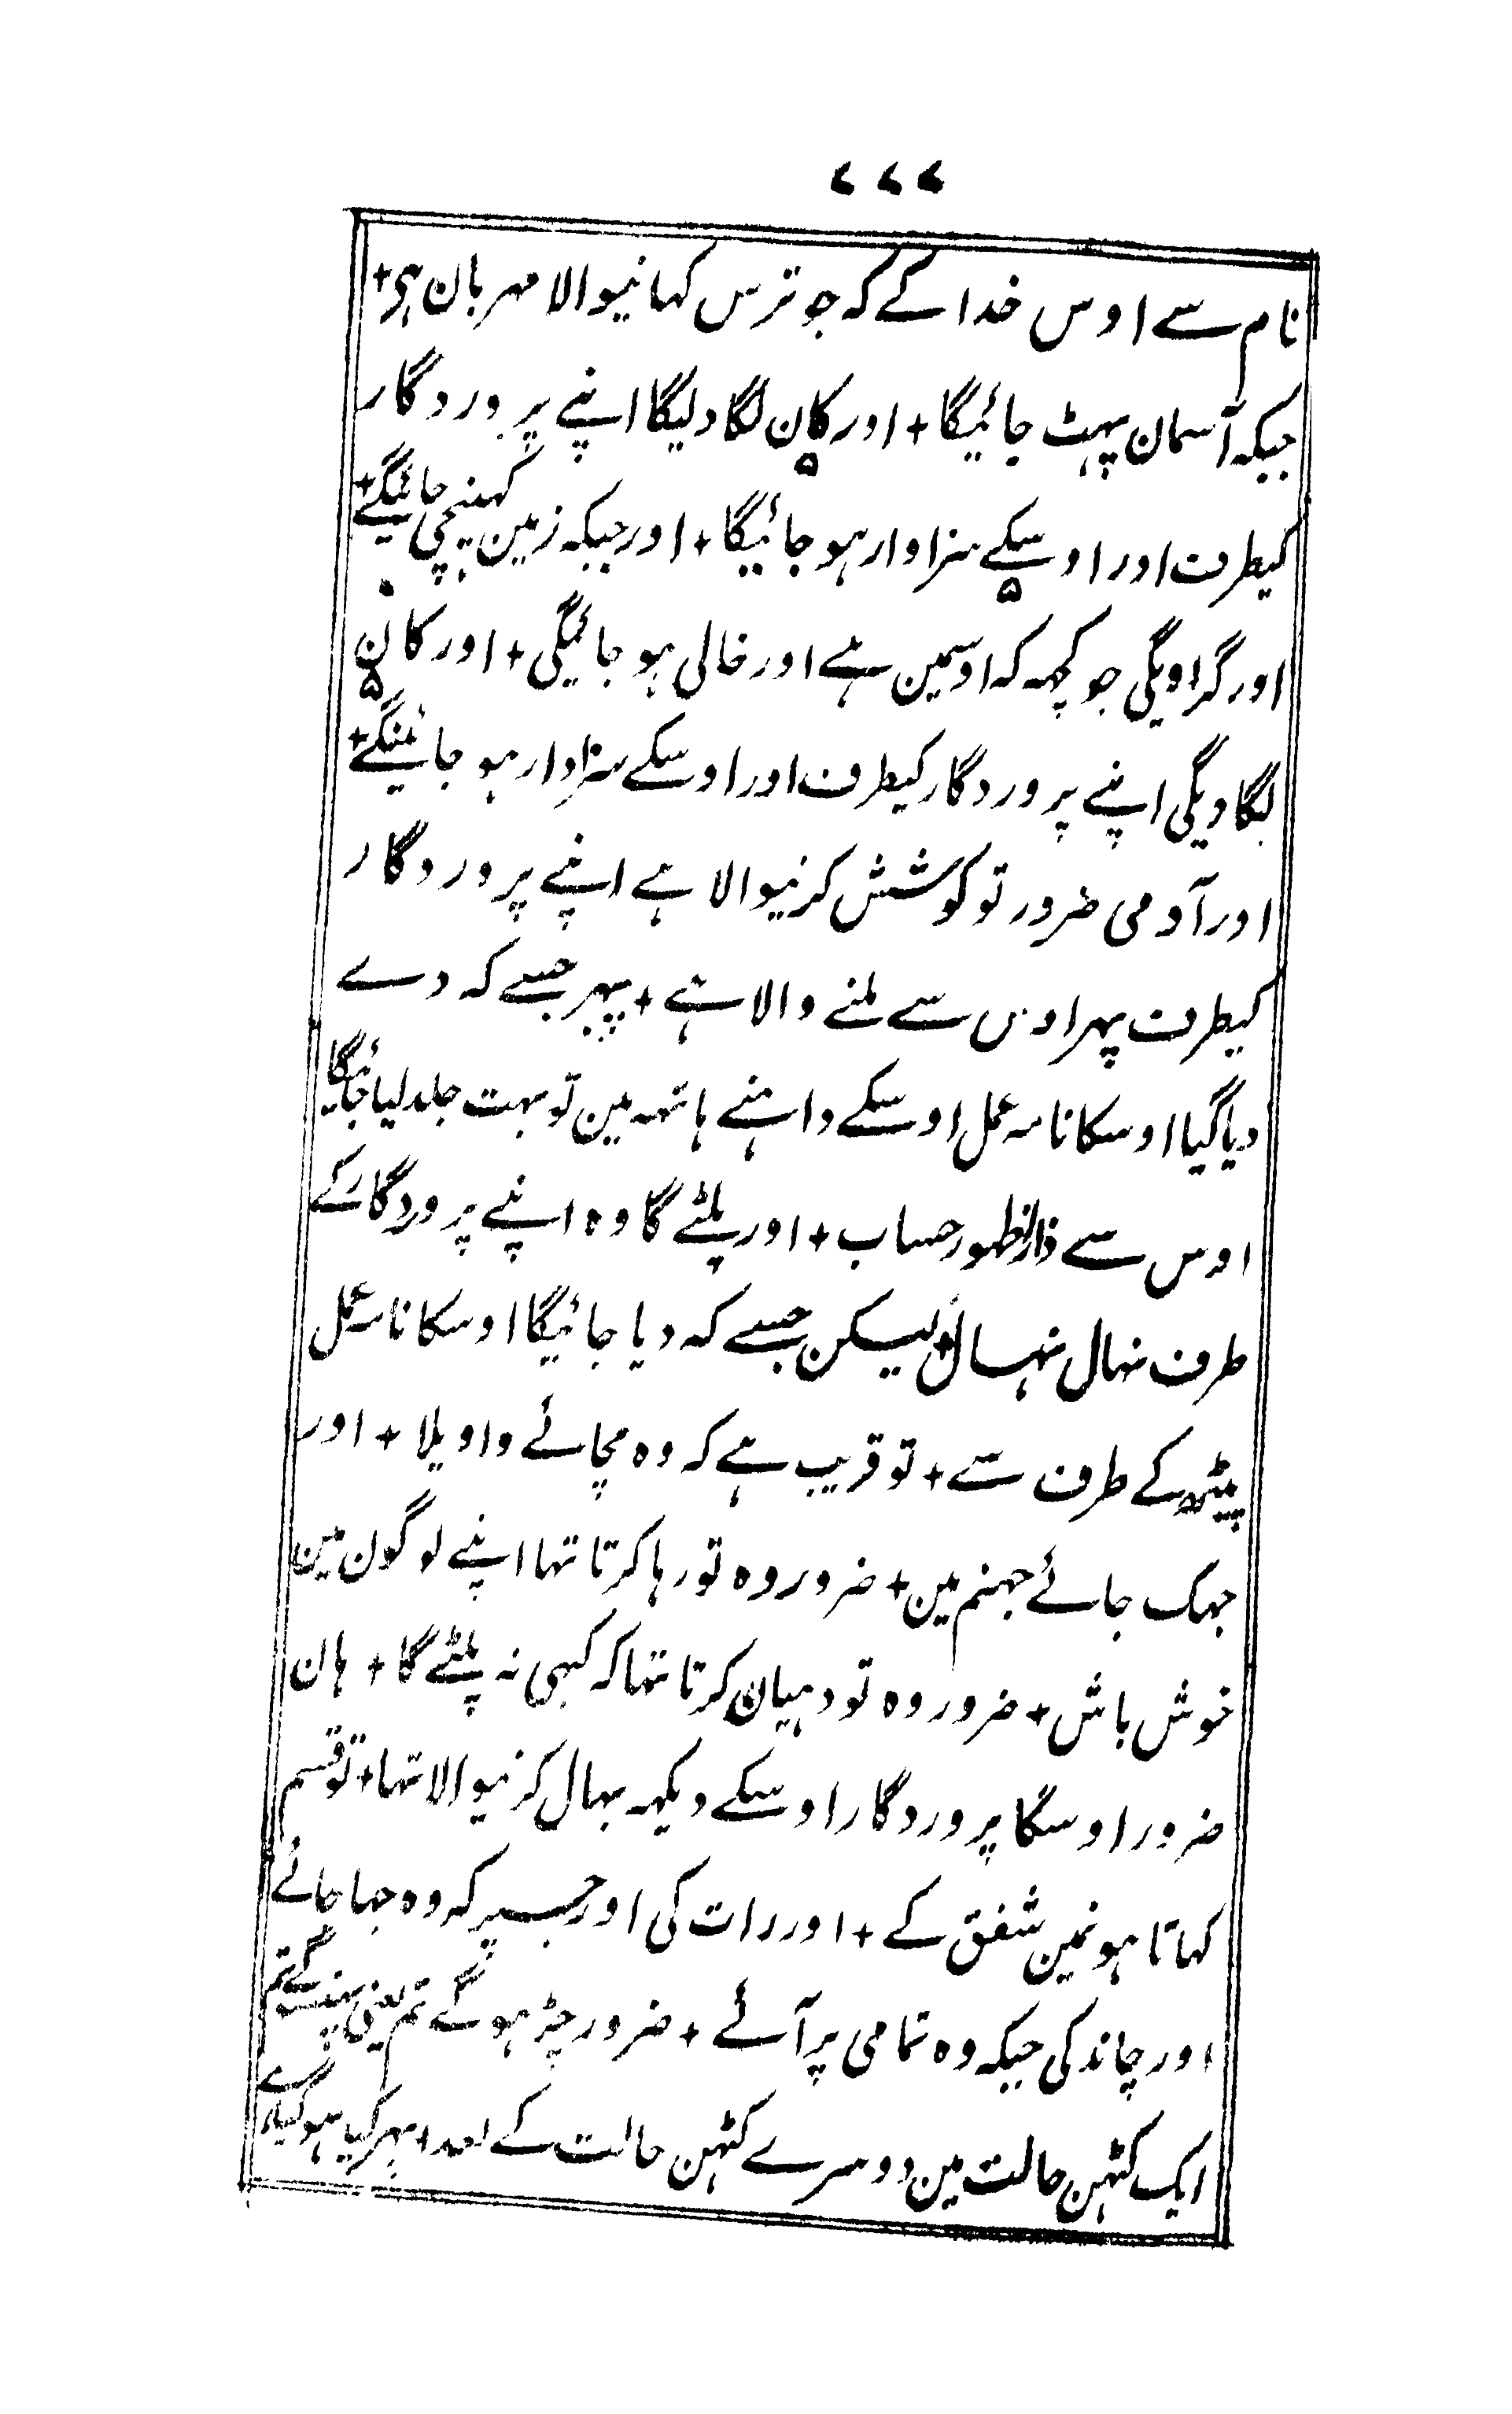 ۷۷۷
نام سے اوس خدا کے کہ جو ترس کہانیوالا مہربان ہی +
جبکہ آسمان پہٹ جائیگا + اور کان لگا دلیگا اپنے پروردگار
کیطرف اور اوسکے سزاوار ہو جائیگا + اور جبکہ زمین کہینچی جائیگے +
اور گراویگی جو کچہہ کہ اوسمین ہے اور خالی ہو جائیگی + اور کان
لگا ویگی اپنے پروردگار کیطرف اور اوسکے سزاوار ہو جائینگے +
اور آدمی ضرور تو کوشش کرنیوالا ہے اپنے پروردگار
کیطرف پہر اوس سے ملنے والا ہے + پہر جسے کہ دے
دیا گیا اوسکا نامہ عمل اوسکے داہنے ہاتہہ مین تو بہت جلد لیا جائیگا
اوس سے حساب + اور پلٹے گا وہ اپنے پروردگار کے
طرف نہال نہال + لیکن جسے کہ دیا جائیگا اوسکا نامہ عمل
پیٹہہ کے طرف سے + تو قریب ہے کہ وہ مچائے واویلا + اور
جہک جائے جہنم مین + ضرور وہ تو رہا کرتا تہا اپنے لوگون مین
خوش باش + ضرور وہ تو دہیان کرتا تہا کہ کبہی نہ پلٹے گا + ہان
ضرور اوسگا پروردگار اوسکے دیکہہ بہال کرنیوالا تہا + تو قسم
کہاتا ہونمین شفق کے + اور رات کی اور جسپر کہ وہ چہا جائے
اور چاند کی جبکہ وہ تمامی پر آئے + ضرور چڑہوگے تم یعنی پہنسوگے تم
ایک کٹہن حالت مین دوسرے کٹہن حالت کے بعد + پہر کیا ہوگیا ہے